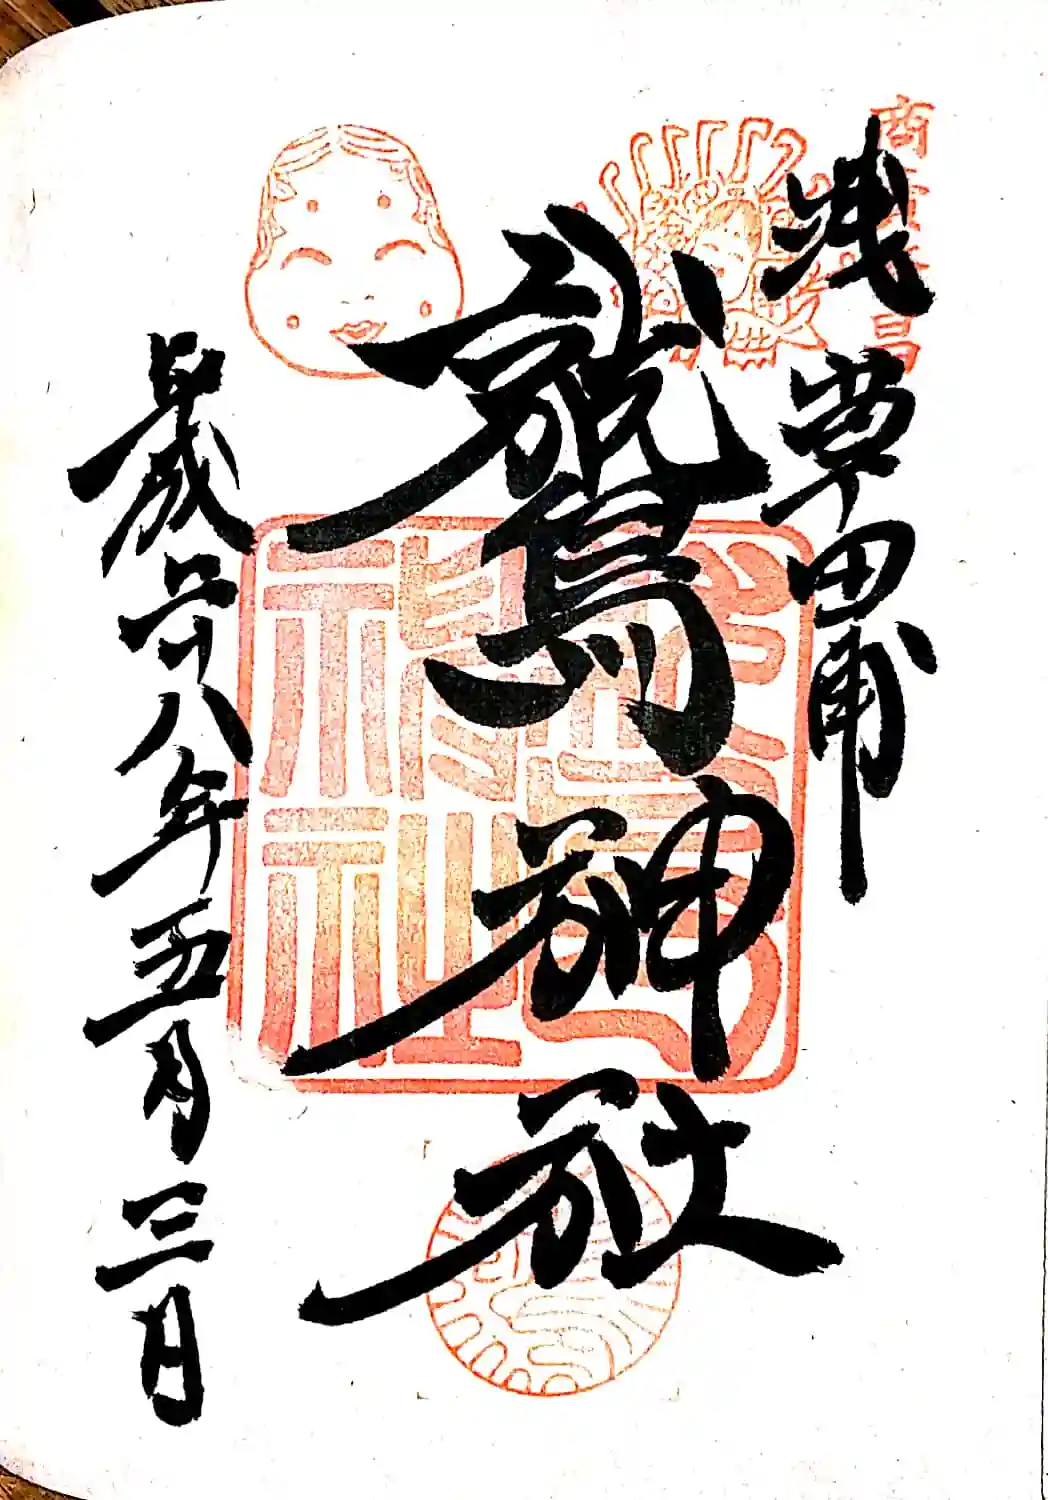 商賣繁昌
浅草田甫
鷲神社
平成二十八年五月三日